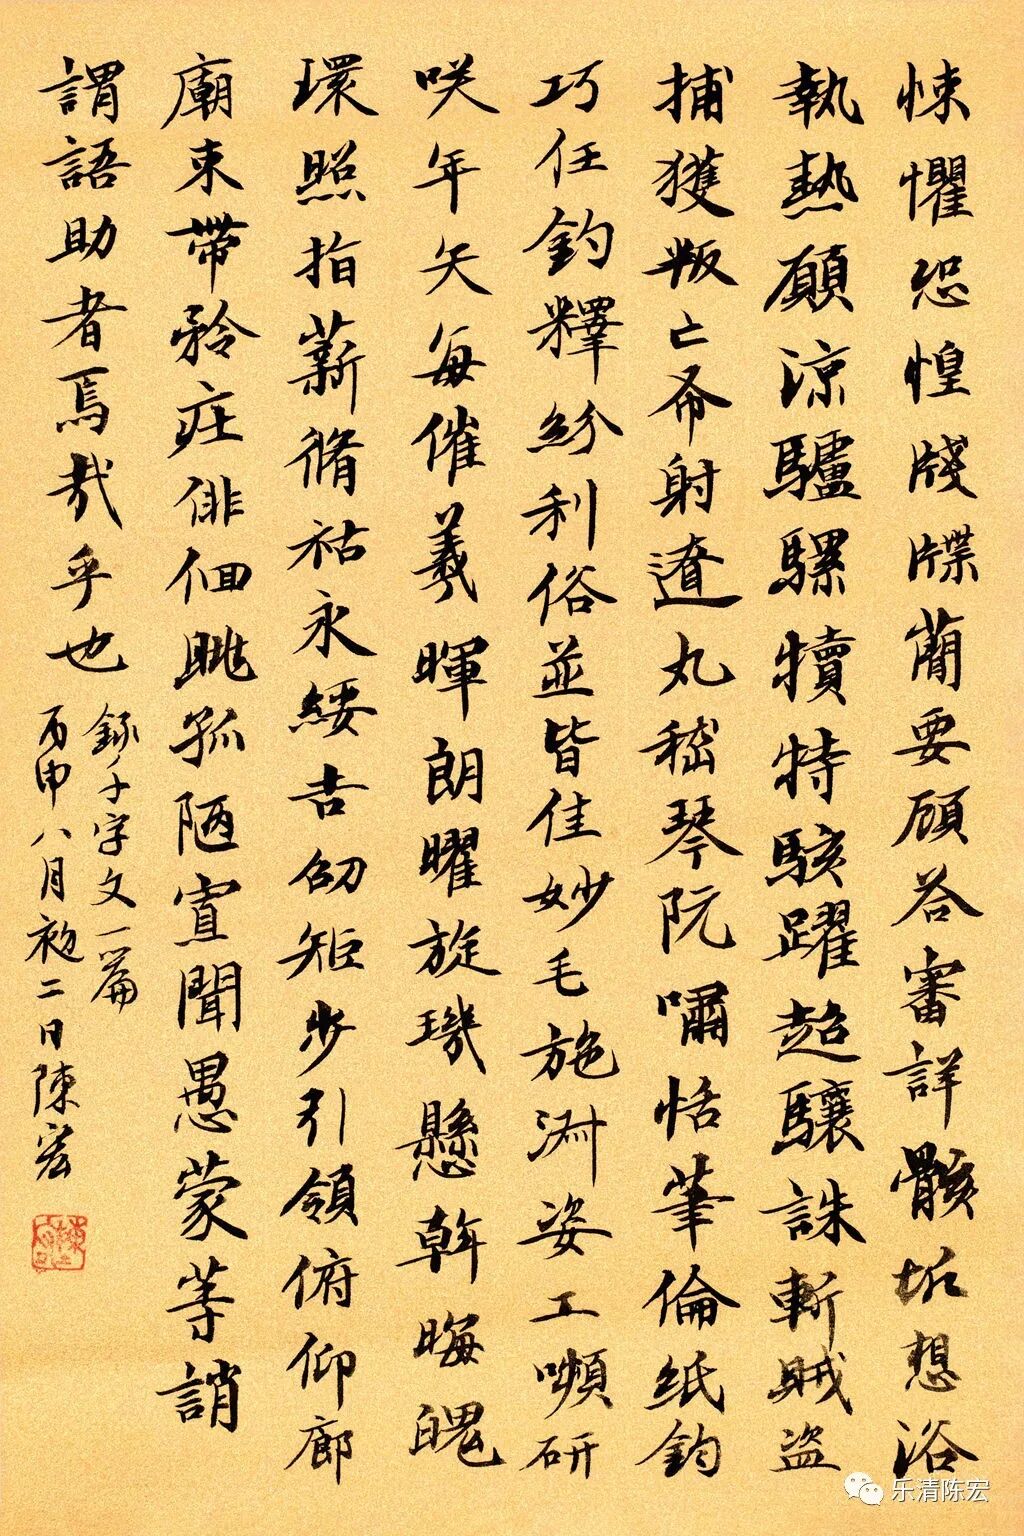 悚懼恐惶牋牒簡要顧答審詳骸垢想浴
執熱願涼驢騾犢特駭躍超驤誅斬賊盜
捕獲叛亡布射遼丸嵇琴阮嘯恬筆倫紙鈞
巧任釣釋紛利俗並皆佳妙毛施淑姿工嚬研
咲年矢每催羲暉朗曜旋璣懸斡晦魄
環照指薪脩祜永綏吉劭矩步引領俯仰廊
廟束帶矜莊俳佪眺孤陋寡聞愚蒙等誚
謂語助者焉哉乎也
錄千字文一篇
丙申八月初二日陳宏
乐清陈宏